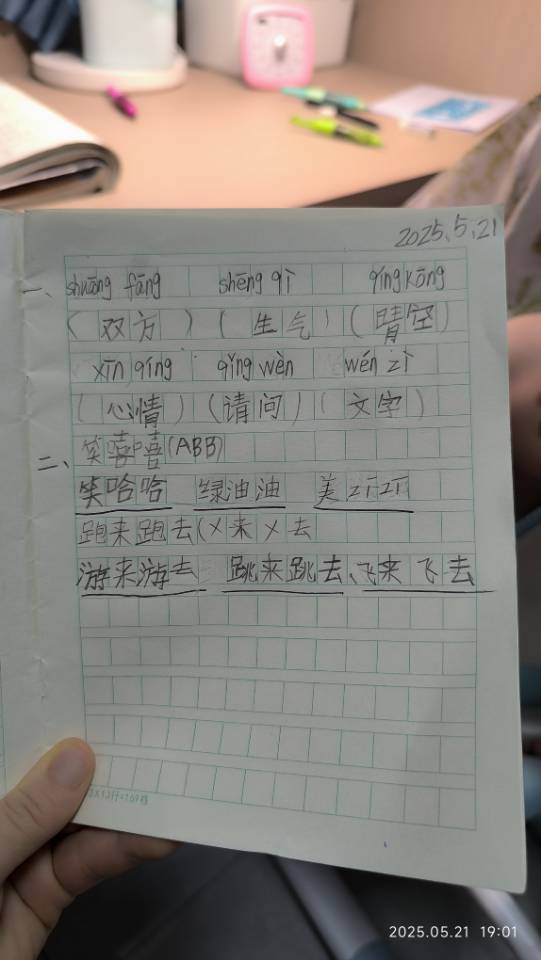 2025.5.21
一、shuāng fāng shēng qì qíng kōng
(双方)(生气)(晴空)
xīn qíng qǐng wèn wén zì
(心情)(请问)(文字)
二、笑嘻嘻(ABB)
笑哈哈 绿油油 美zīzī
跑来跑去(X来X去
游来游去 跳来跳去、飞来飞去
13X13行=169格
2025.05.21 19:01